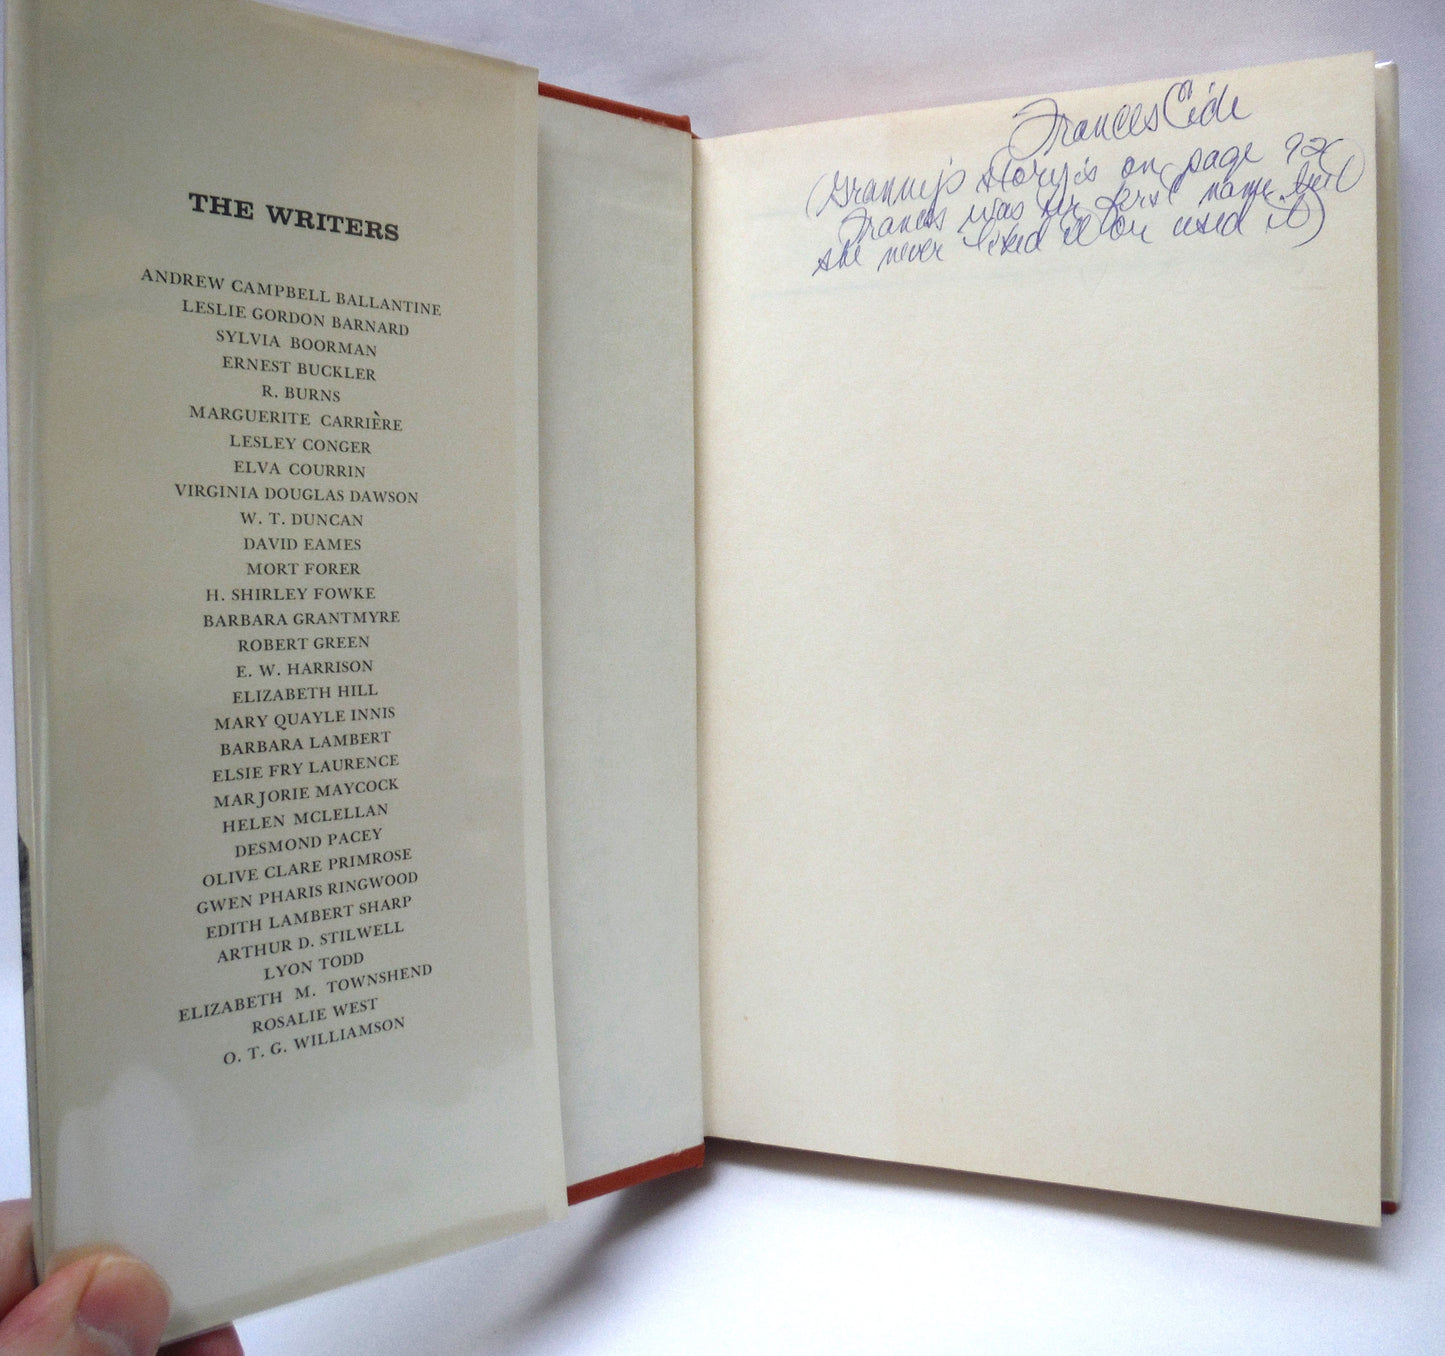 THE WRITERS
ANDREW CAMPBELL BALLANTINE
LESLIE GORDON BARNARD
SYLVIA BOORMAN
ERNEST BUCKLER
R. BURNS
MARGUERITE CARRIÈRE
LESLEY CONGER
ELVA COURRIN
VIRGINIA DOUGLAS DAWSON
W. T. DUNCAN
DAVID EAMES
MORT FORER
H. SHIRLEY FOWKE
BARBARA GRANTMYRE
ROBERT GREEN
E. W. HARRISON
ELIZABETH HILL
MARY QUAYLE INNIS
BARBARA LAMBERT
ELSIE FRY LAURENCE
MARJORIE MAYCOCK
HELEN MCLELLAN
DESMOND PACEY
OLIVE CLARE PRIMROSE
GWEN PHARIS RINGWOOD
EDITH LAMBERT SHARP
ARTHUR D. STILWELL
LYON TODD
ELIZABETH M. TOWNSHEND
ROSALIE WEST
O. T. G. WILLIAMSON
Frances
(Granny's story is on page
Frances was her first name but
she never liked it or used it)